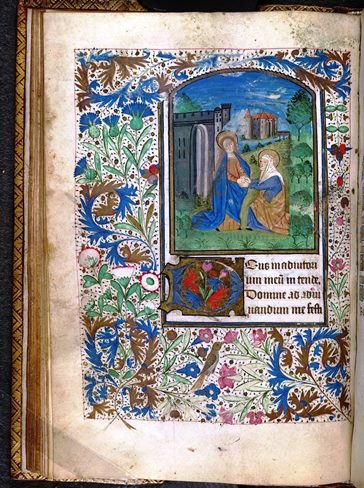 Deus in adiutori
um meū in tende.
Domine ad adiu
uandum me festi